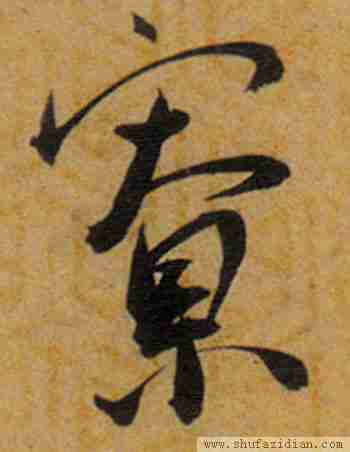 寮
www.shufazidian.com